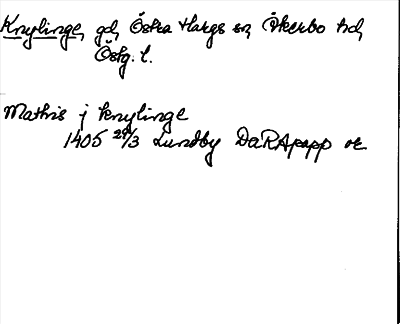 Knylinge, gd, Östra Hargs sn, Åkerbo hd,
Östg. l.
Mathis j knylinge
1405 29/3 Lundby DaRApapp or.